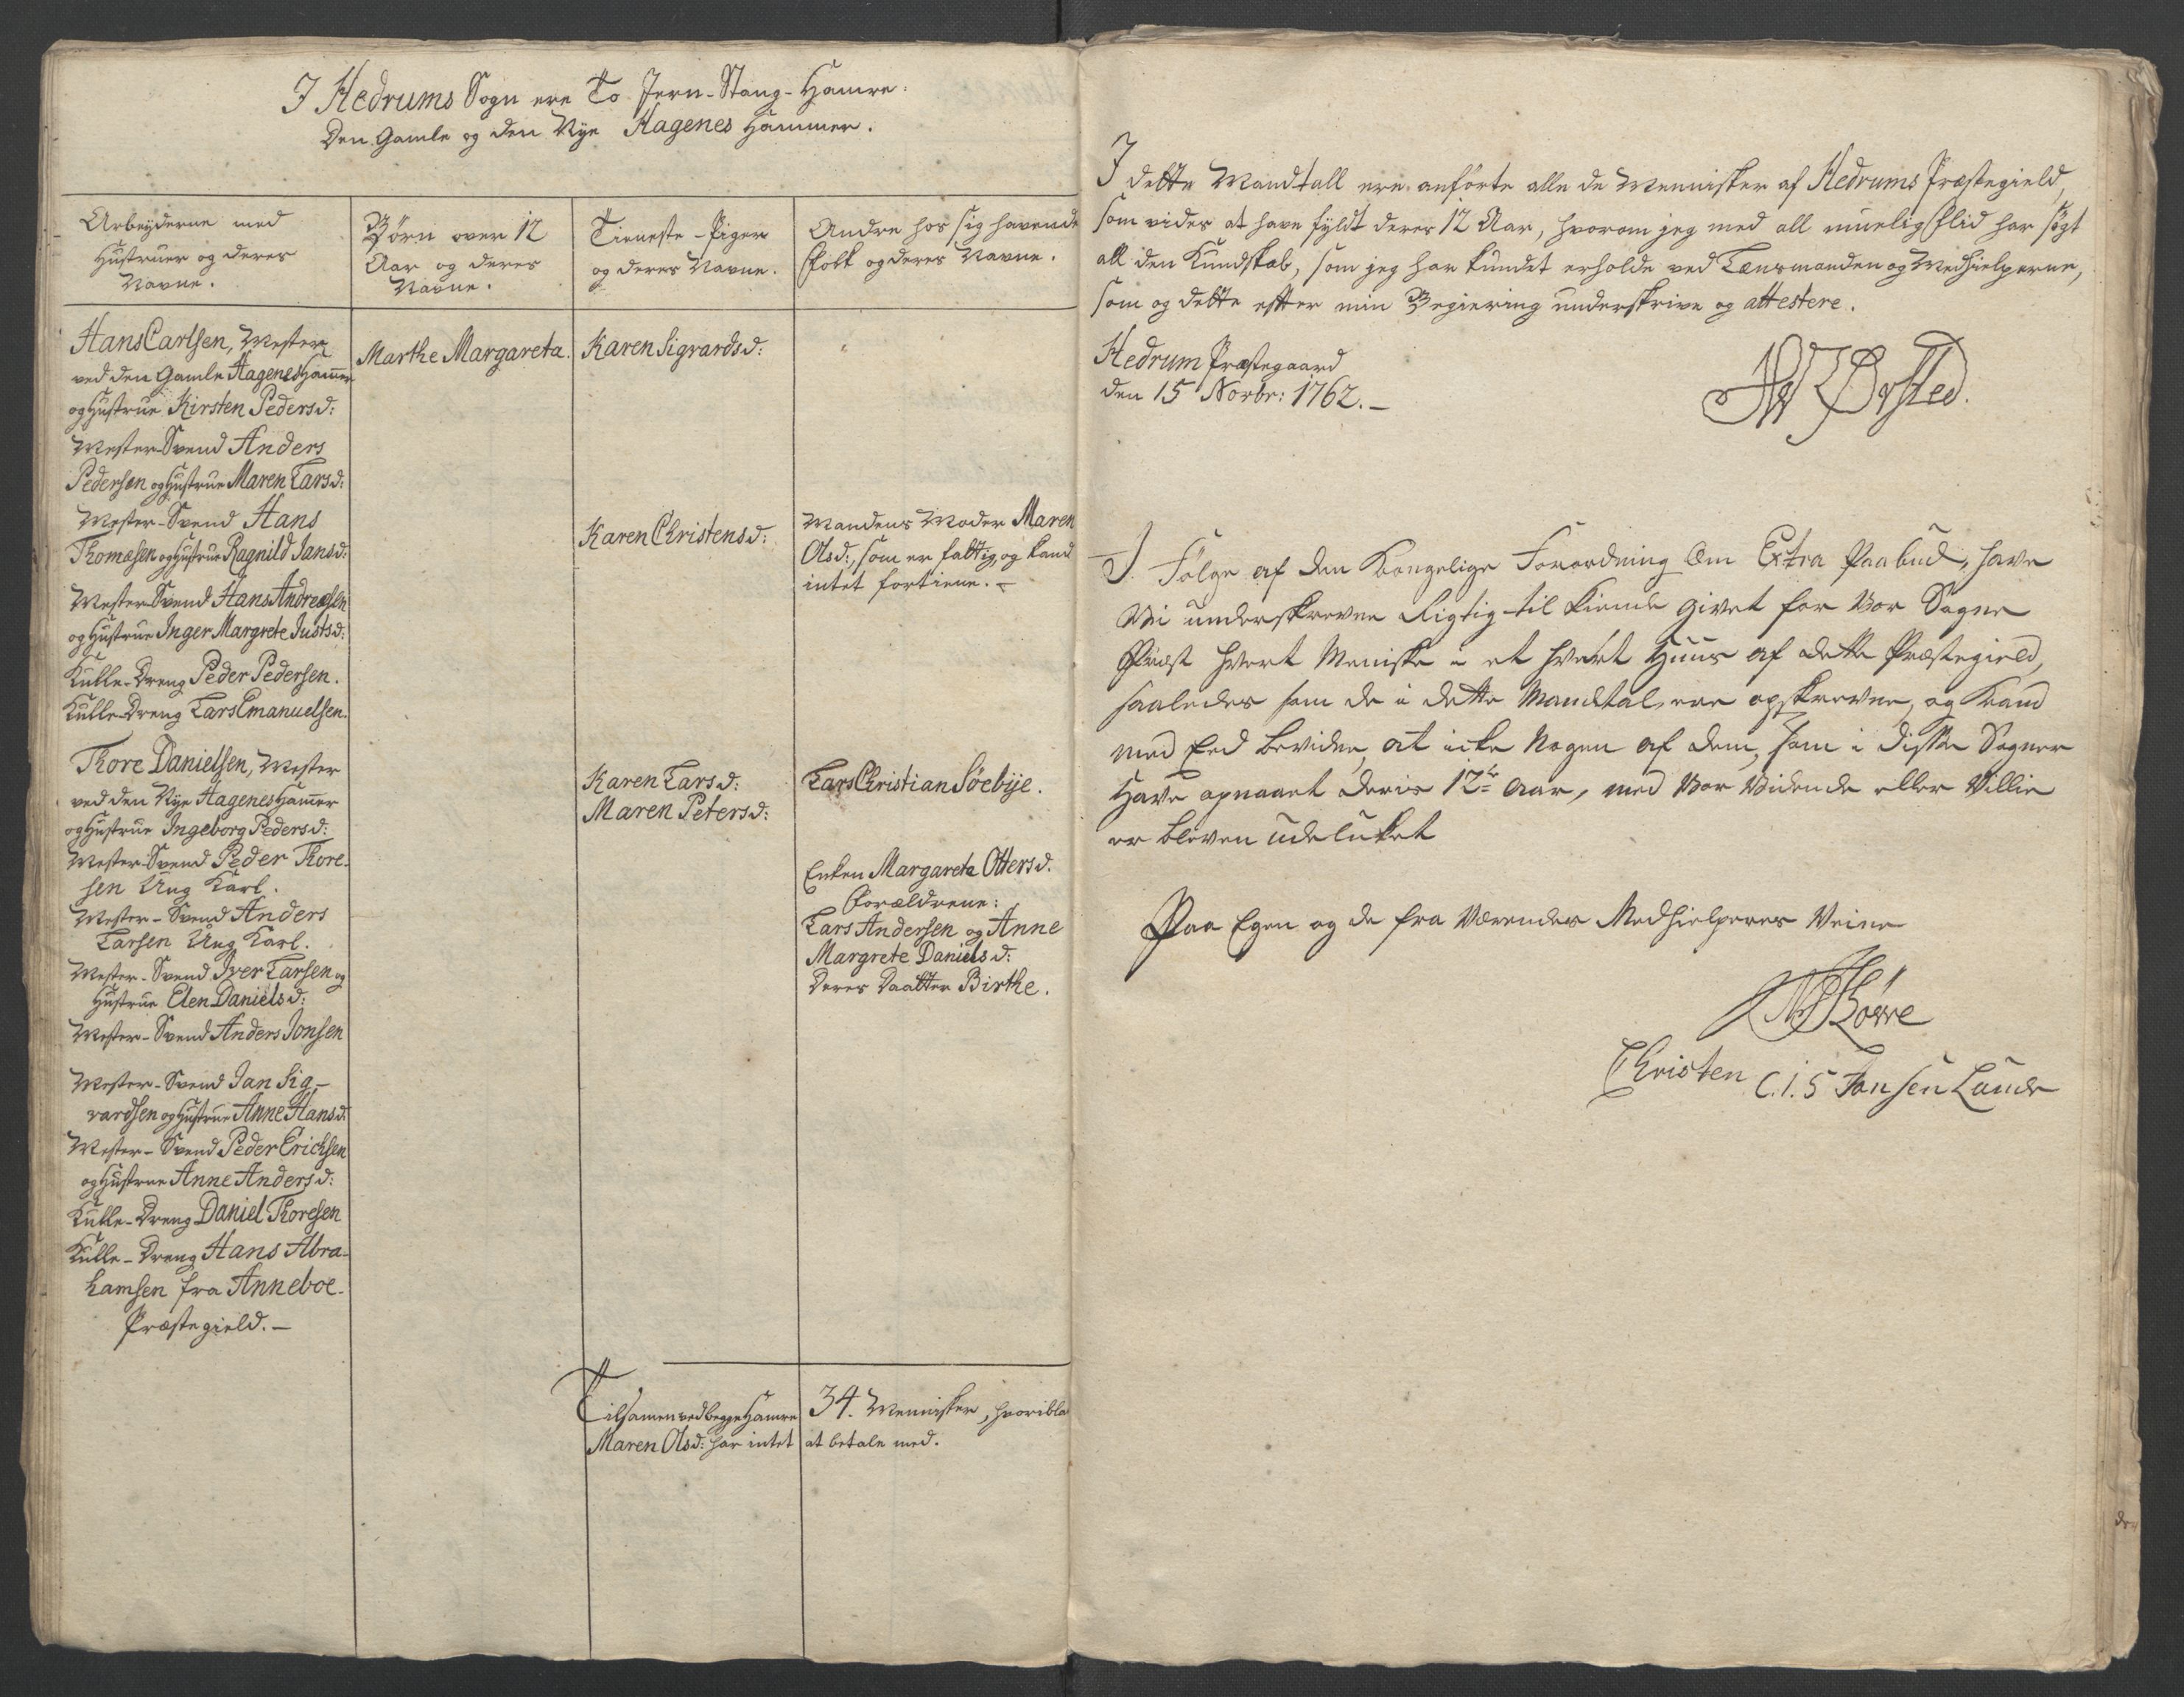 I Hedrums Sogn ere To Jern-Stang-Hamre:
Den Gamle og den Nye Hagenes Hammer.
Arbeyderne med
Hustruer og deres
Navne.
Børn over 12
Aar og deres
Navne.
Tieneste-Piger
og deres Navne.
Andre hos sig havende
Folk og deres Navne.
Hans Carlsen, Mester
ved den Gamle Hagenes Ham̅er
og Hustrue Kirsten Pedersd:
Marthe Margareta.
Karen Sigvardsd:
Mester-Svend Anders
Pedersen og Hustrue Maren Larsd:
Mester-Svend Hans
Thomæsen og Hustrue Ragnild Jansd:
Karen Christensd:
Mandens Moder Maren
Olsd:, som er fattig, og kand
intet fortiene.-
Mester-Svend Hans Andreæsen
og Hustrue Inger Margrete Justsd:
Kulle-Dreng Peder Pedersen.
Kulle-Dreng Lars Emanuelsen.
Thore Danielsen, Mester
ved den Nye Hagenes Ham̅er
og Hustrue Ingeborg Pedersd:
Karen Larsd:
Maren Petersd:
Lars Christian Søebÿe.
Mester-Svend Peder Thore-
sen Ung Karl.
Mester-Svend Anders
Larsen Ung Karl.
Enken Margareta Ottersd.
Forældrene:
Lars Andersen og Anne
Margrete Danielsd:
Deres Daatter Birthe.
Mester-Svend Iver Larsen og
Hustrue Elen Danielsd:
Mester-Svend Anders Jonsen
Mester-Svend Jan Sig-
vardsen og Hustrue Anne Hansd.
Mester-Svend Peder Erichsen
og Hustrue Anne Andersd:
Kulle-Dreng Daniel Thoresen
Kulle-Dreng Hans Abra-
hamsen fra Anneboe-
Præstegield.-
Tilsamen ved begge Hamre 34. Mennisker, hvoribla
Maren Olsd: har intet at betale med.
I dette Mandtall ere anførte alle de Mennisker af Hedrums Præstegield,
som vides at have fyldt deres 12 Aar, hvorom jeg med all muelig Flid har søgt
all den Kundskab, som jeg har kundet erholde ved Lensmanden og Medhielperne,
som og dette efter min Begiering underskrive og attestere.
Hedrum Præstegaard
den 15 Novbr: 1762.-
Ørsted.
I Følge af den Kongelige Forordning Om Extra Paabud, have
Vi underskrevne Rigtig til kiende givet for Vor Sogne
Præst hvert Meniske i et hvert Huus af dette Præstegield,
saaledes som de i dette Mandtal ere opskrevne, og Kand
med Eed bevidne, at icke Nogen af dem, som i disse Sogner
Have opnaaet deris 12te Aar, med Vor Vidende eller Villie
er bleven udelucket
Paa Egen og de fra Værendes Medhielperes Veine
Christen C.I.S Jansen Lunde